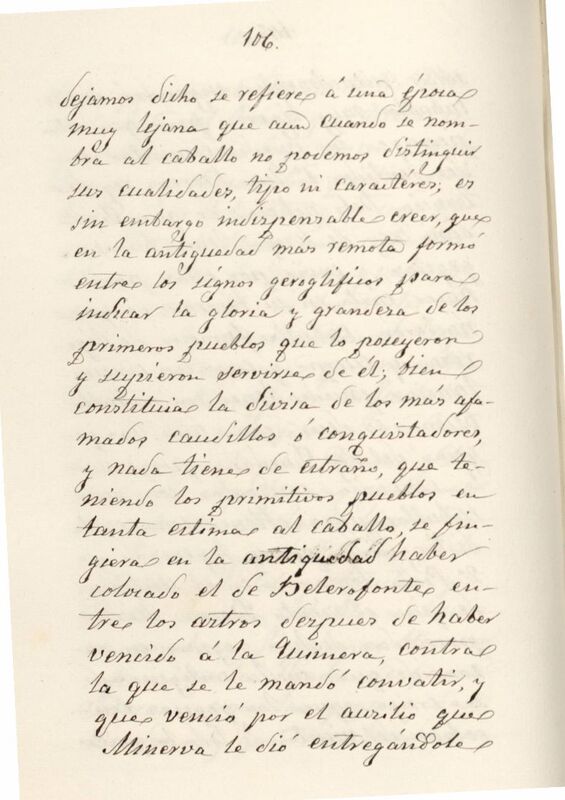 106.
dejamos dicho se refiere á una época
muy lejana que aun cuando se nom-
bra al caballo no podemos distinguir
sus cualidades, tipo ni caractéres; es
sin embargo indispensable creer, que
en la antiguedad más remota formó
entre los signos geroglificos para
indicar la gloria y grandeza de los
primeros pueblos que lo poseyeron
y supieron servirse de él; bien
constituia la divisa de los más afa-
mados caudillos ó conquistadores,
y nada tiene de estraño, que te-
niendo los primitivos pueblos en
tanta estima al caballo, se fin-
giera en la antiguedad haber
colocado el de Belerofonte en-
tre los astros despues de haber
vencido á la Quimera, contra
la que se le mandó convatir, y
que venció por el ausilio que
Minerva le dió entregándole